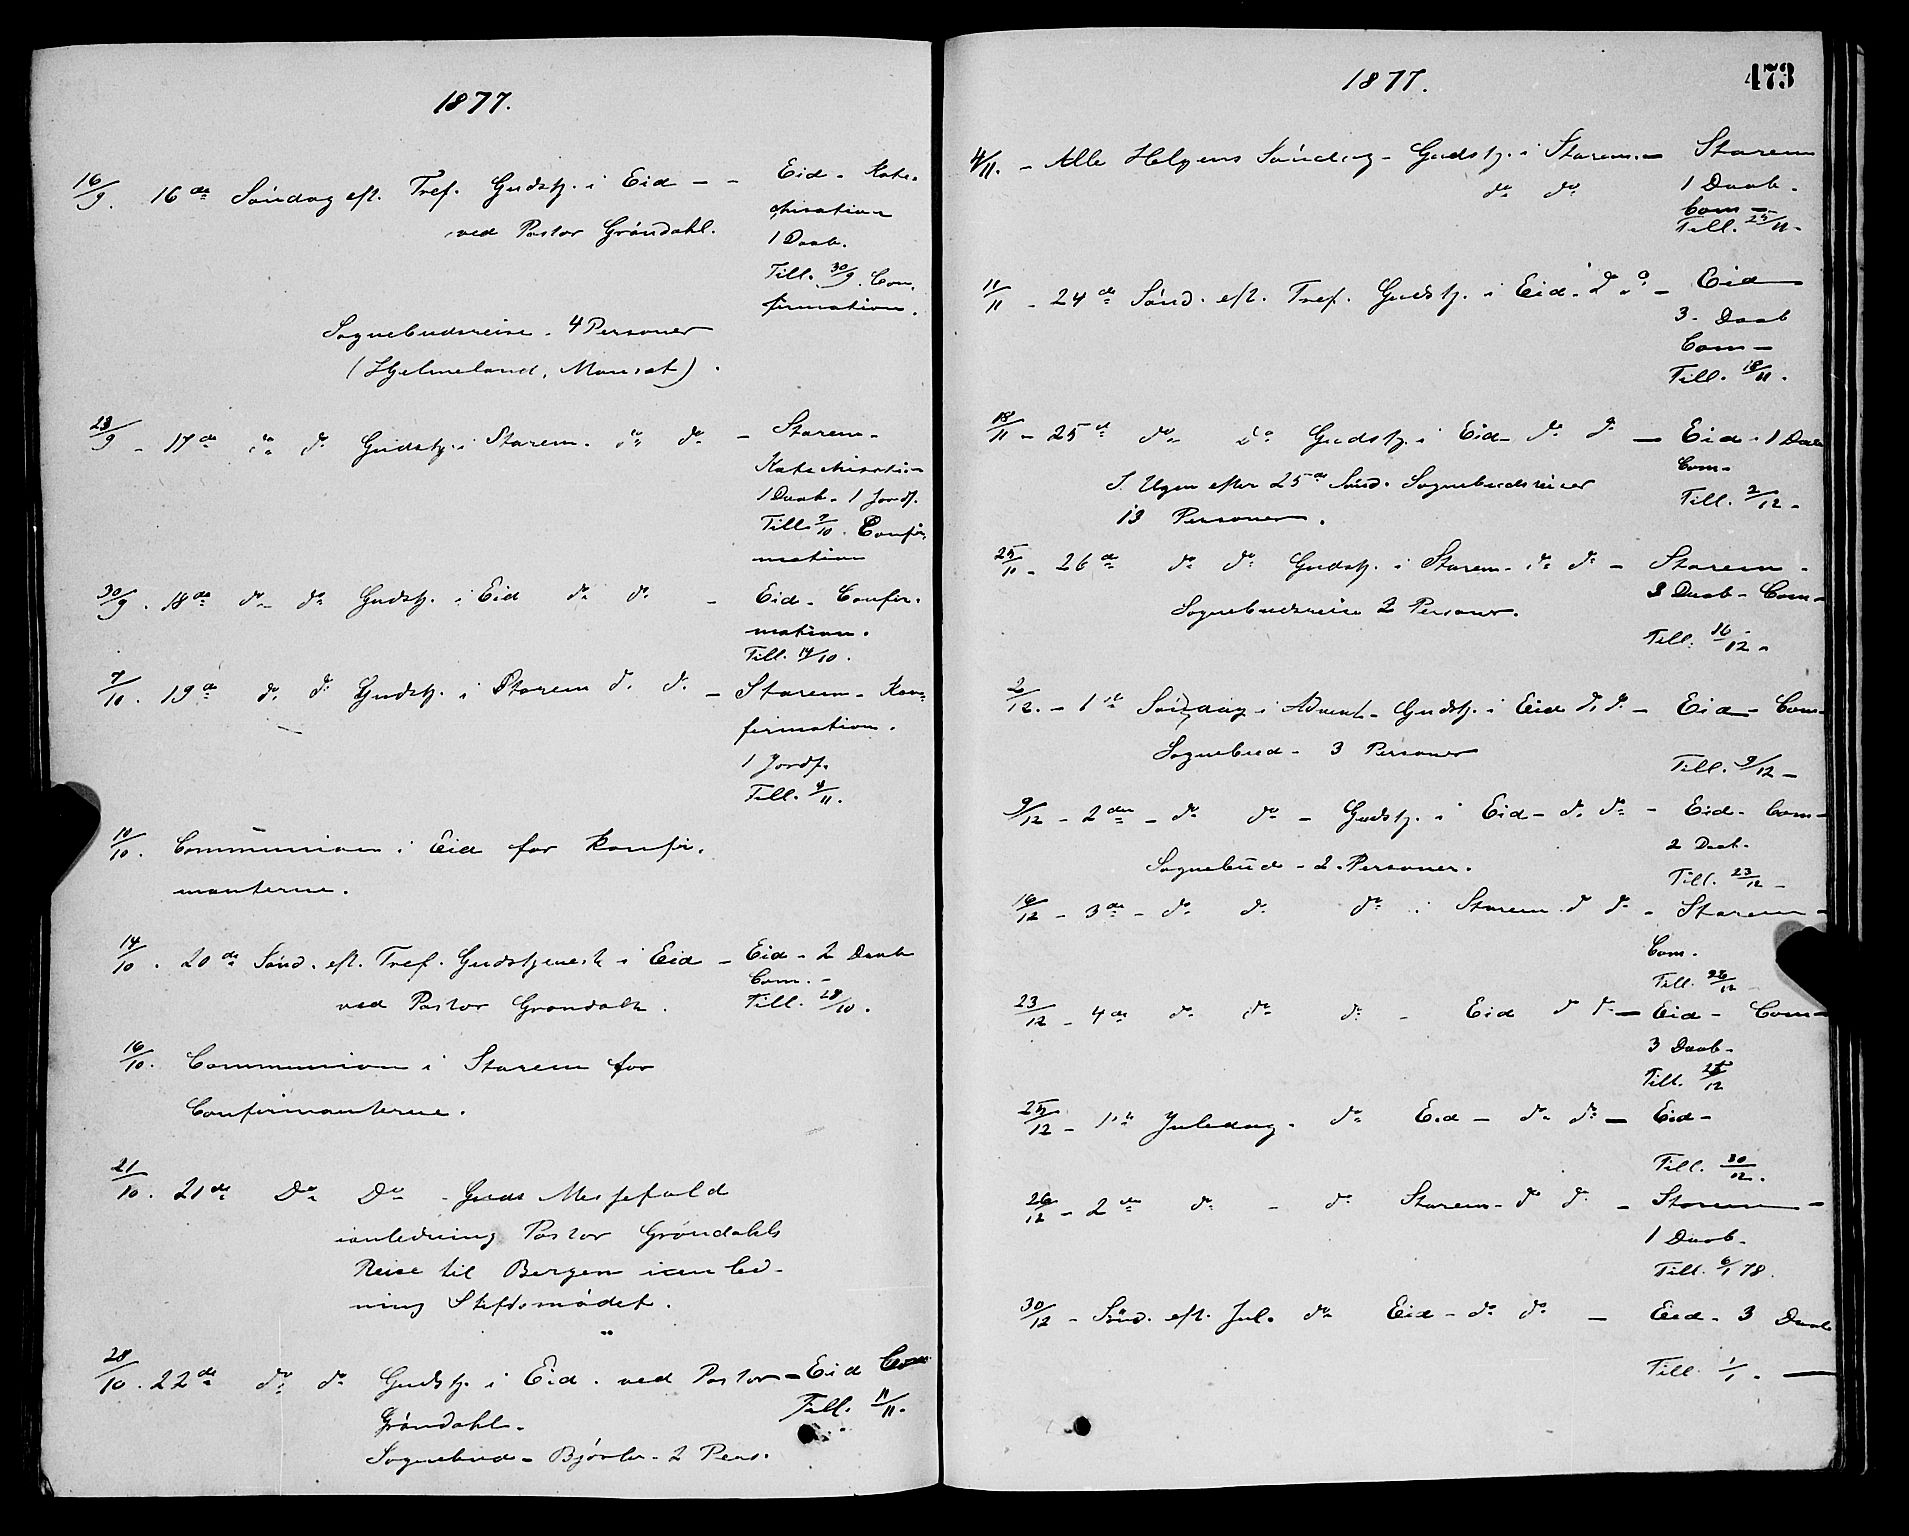 1877.
16/9. 16de Söndag eft. Tref. Gudstj. i Eid - - Eid - Kate-
chisation
ved Pastor Gröndahl. 1 Daab.
Till. 30/9. Con-
firmation.
Sognebudsreise - 4 Personer
(Hjelmeland, Maurset).
23/9 - 17de do do Gudstj. i Starem. do do - Starem -
Katechisation
1 Daab - 1 Jordf.
Till. 7/10. Confir-
mation
30/9. 18de do do Gudstj. i Eid do do - Eid - Confir-
mation.
Till. 14/10.
7/10. 19de do do Gudstj. i Starem do do - Starem - Kon-
firmation.
1 Jordf.
Till. 4/11.
10/10. Communion i Eid for Konfir-
manterne.
14/10. 20de Sönd. eft. Tref. Gudstjeneste i Eid - Eid - 2 Daab
Com. -
ved Pastor Grøndahl. Till. 28/10.
16/10. Communion i Starem for
Confirmanterne.
21/10. 21de Do Do - Guds Messefald
ianledning Pastor Gröndahls
Reise til Bergen ianled-
ning Stiftsmödet.
28/10. 22de do do Gudstj. i Eid. ved Pastor - Eid Com
Gröndahl. Till. 11/11.
Sognebud - Bjørlo - 2 Pers.
1877.
473
4/11. - Alle Helgens Söndag - Gudstj. i Starem. - Starem
do do 1 Daab.
Com -
Till. 25/11 -
11/11 - 24de Sönd. eft. Tref. Gudstj. i Eid. do do - Eid
3 - Daab
Com -
Till. 18/11.
18/11 - 25de do do Gudstj. i Eid - do do - Eid - 1 Daab
Com -
I Ugen efter 25de Sönd. Sognebudsreiser Till. 2/12 -
13 Personer.
25/11 - 26de do do Gudstj. i Starem - do do - Starem -
3 Daab - Com -
Sognebudsreise 2 Personer.
Till. 16/12 -
2/12. - 1ste Söndag i Advent - Gudstj. i Eid do do - Eid - Com -
Sognebud - 3 Personer
Till. 9/12 -
9/12 - 2den - do do - Gudstj. i Eid - do do - Eid - Com -
2 Daab.
Sognebud - 2 Personer. Till. 23/12 -
16/12 - 3de - do do do i Starem do do - Starem -
Com.
Till. 26/12
23/12 - 4de do do do - Eid do do - Eid - Com -
3 Daab -
Till. 25/12
25/12 - 1ste Juledag. do Eid - do do - Eid -
Till. 30/12.
26/12 - 2den do - do Starem - do do - Starem -
1 Daab -
Till. 6/1 78.
30/12 - Sönd. eft. Jul. do Eid - do do - Eid - 3 Daab
Till. 1/1. -